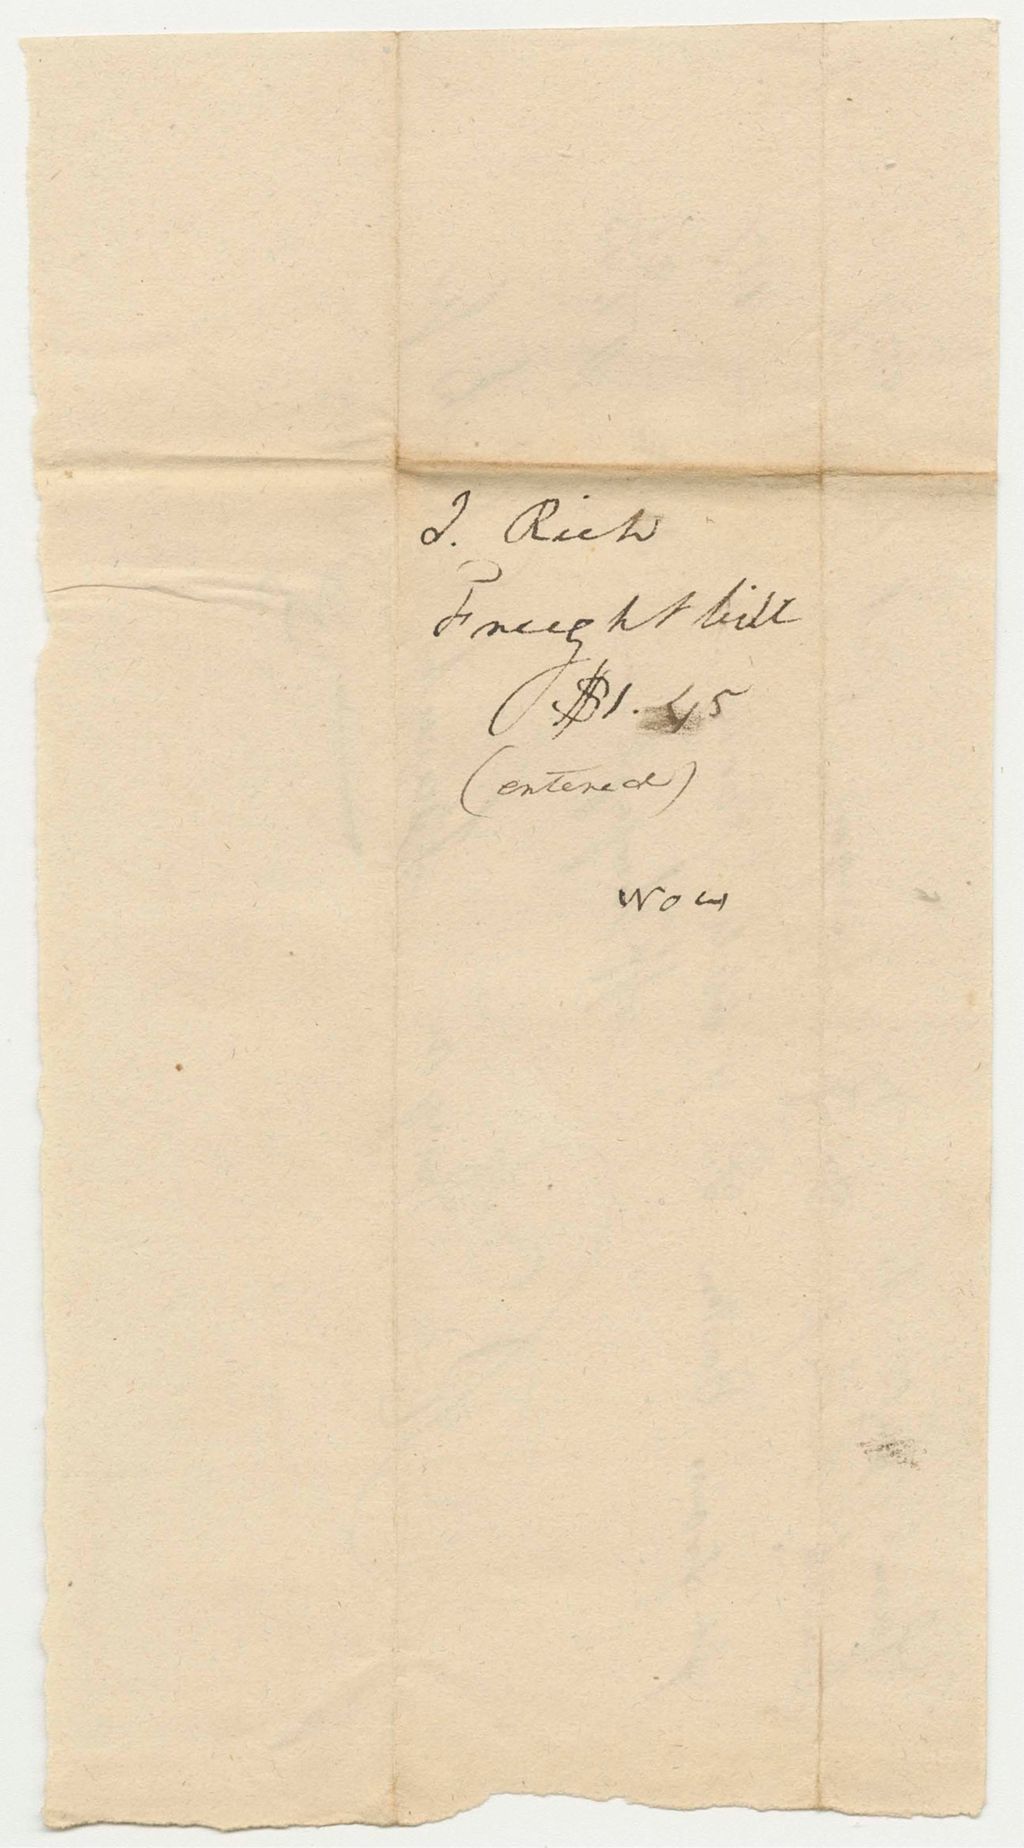 J. Rich
Freight bill
$1.45
(entered)